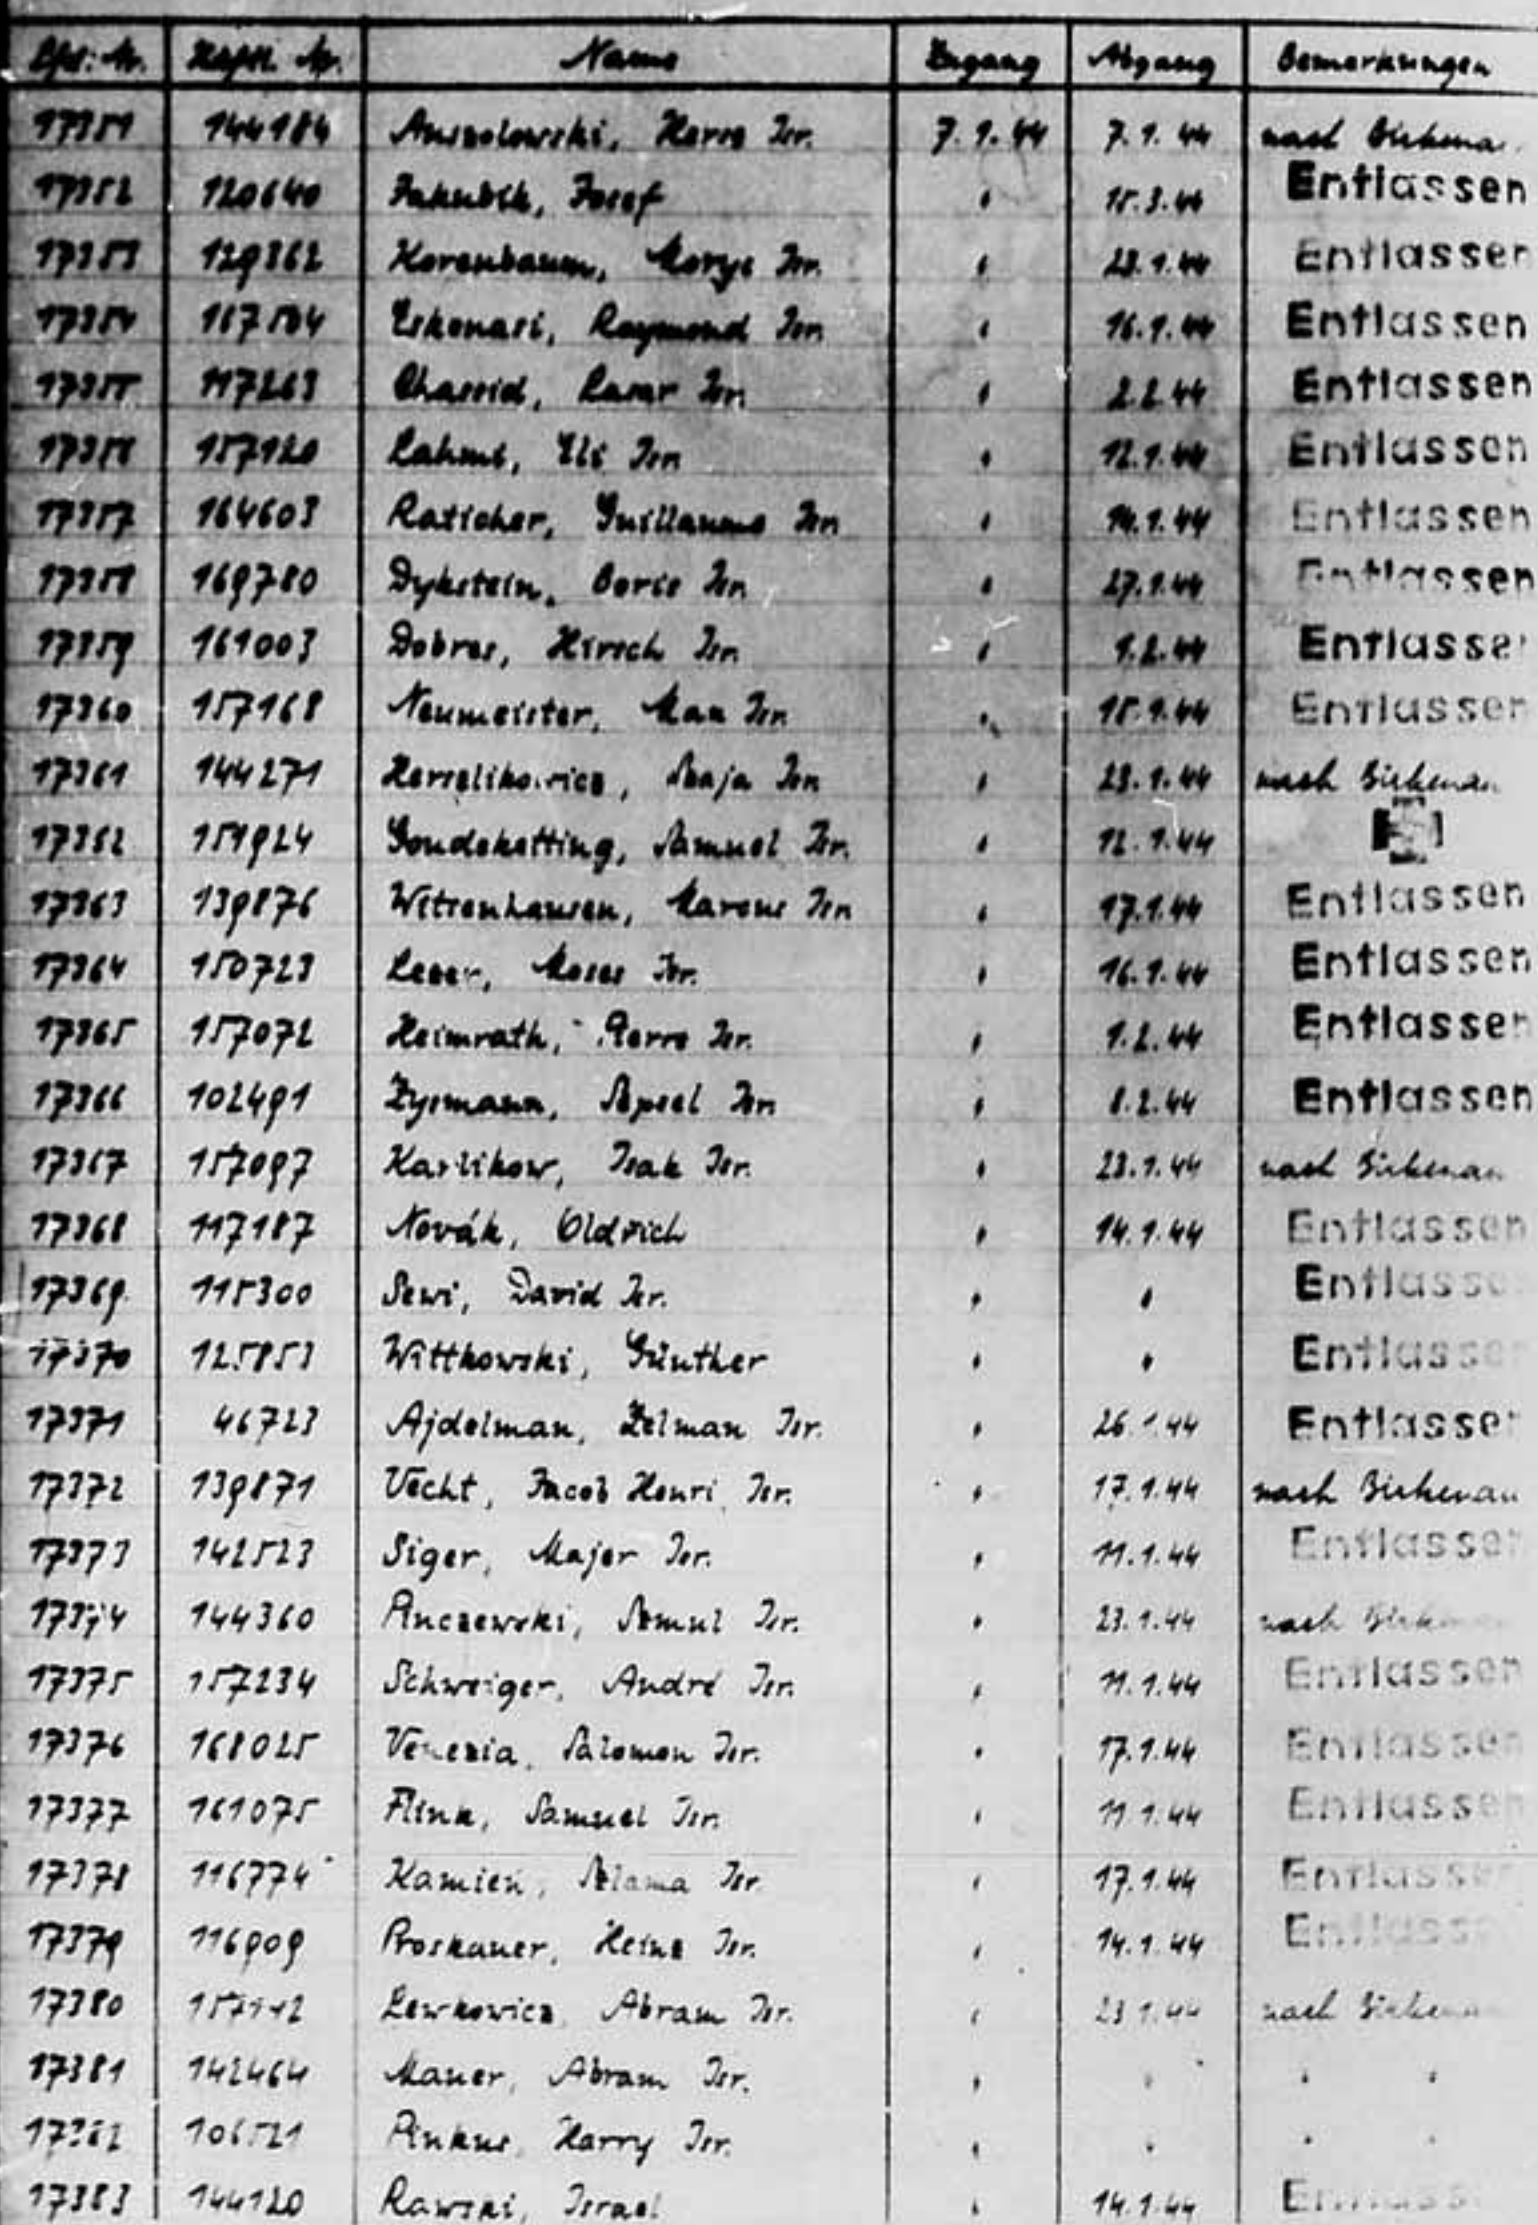 Lfd. Nr. Häftl. Nr. Name Zugang Abgang Bemerkungen
17351 144184 Herse Isr. 7.1.44 7.1.44 nach Birkenau
17352 120640 Jakubik, Josef " 15.3.44 Entlassen
17353 129362 Korenbaum, Moryc Isr. " 28.1.44 Entlassen
17354 167504 Eskenasi, Raymond Isr. " 16.1.44 Entlassen
17355 117263 Chassid, Lasar Isr. " 2.2.44 Entlassen
17356 157120 Lahmi, Eli Isr. " 12.1.44 Entlassen
17357 164603 Raticher, Guillaume Isr. " 14.1.44 Entlassen
17358 169780 Dykstein, Boris Isr. " 27.1.44 Entlassen
17359 161003 Dobres, Hirsch Isr. " 1.2.44 Entlassen
17360 157168 Neumeister, Max Isr. " 15.1.44 Entlassen
17361 144271 Szaja Isr. " 23.1.44 nach Birkenau
17362 151924 Goudeketting, Samuel Isr. " 12.1.44
17363 139876 Witzenhausen, Marcus Isr. " 17.1.44 Entlassen
17364 150723 Leser, Moses Isr. " 16.1.44 Entlassen
17365 157072 Heimrath, Pierre Isr. " 1.2.44 Entlassen
17366 102491 Zysmann, Isr. " 8.2.44 Entlassen
17367 157097 Karlikow, Isak Isr. " 23.1.44 nach Birkenau
17368 117187 Novák, Oldrich " 14.1.44 Entlassen
17369 115300 Sewi, David Isr. " " Entlassen
17370 125853 Wittkowski, Günther " " Entlassen
17371 46723 Ajdelman, Zelman Isr. " 26.1.44 Entlassen
17372 139871 Vecht, Jacob Henri Isr. " 17.1.44 nach Birkenau
17373 142523 Siger, Majer Isr. " 11.1.44 Entlassen
17374 144360 Pinczewski, Szmul Isr. " 23.1.44 nach Birkenau
17375 157234 Schweiger, André Isr. " 11.1.44 Entlassen
17376 168025 Venezia, Salomon Isr. " 17.1.44 Entlassen
17377 161075 Flink, Samuel Isr. " 11.1.44 Entlassen
17378 116774 Kamień, Szlama Isr. " 17.1.44 Entlassen
17379 116909 Proskauer, Heinz Isr. " 14.1.44 Entlassen
17380 Lewkowicz, Abram Isr. " 23.1.44 nach Birkenau
17381 142464 Mauer, Abram Isr. " " " "
17382 106521 Pinkus, Harry Isr. " " " "
17383 144120 Rawski, Israel " 14.1.44 Entlassen